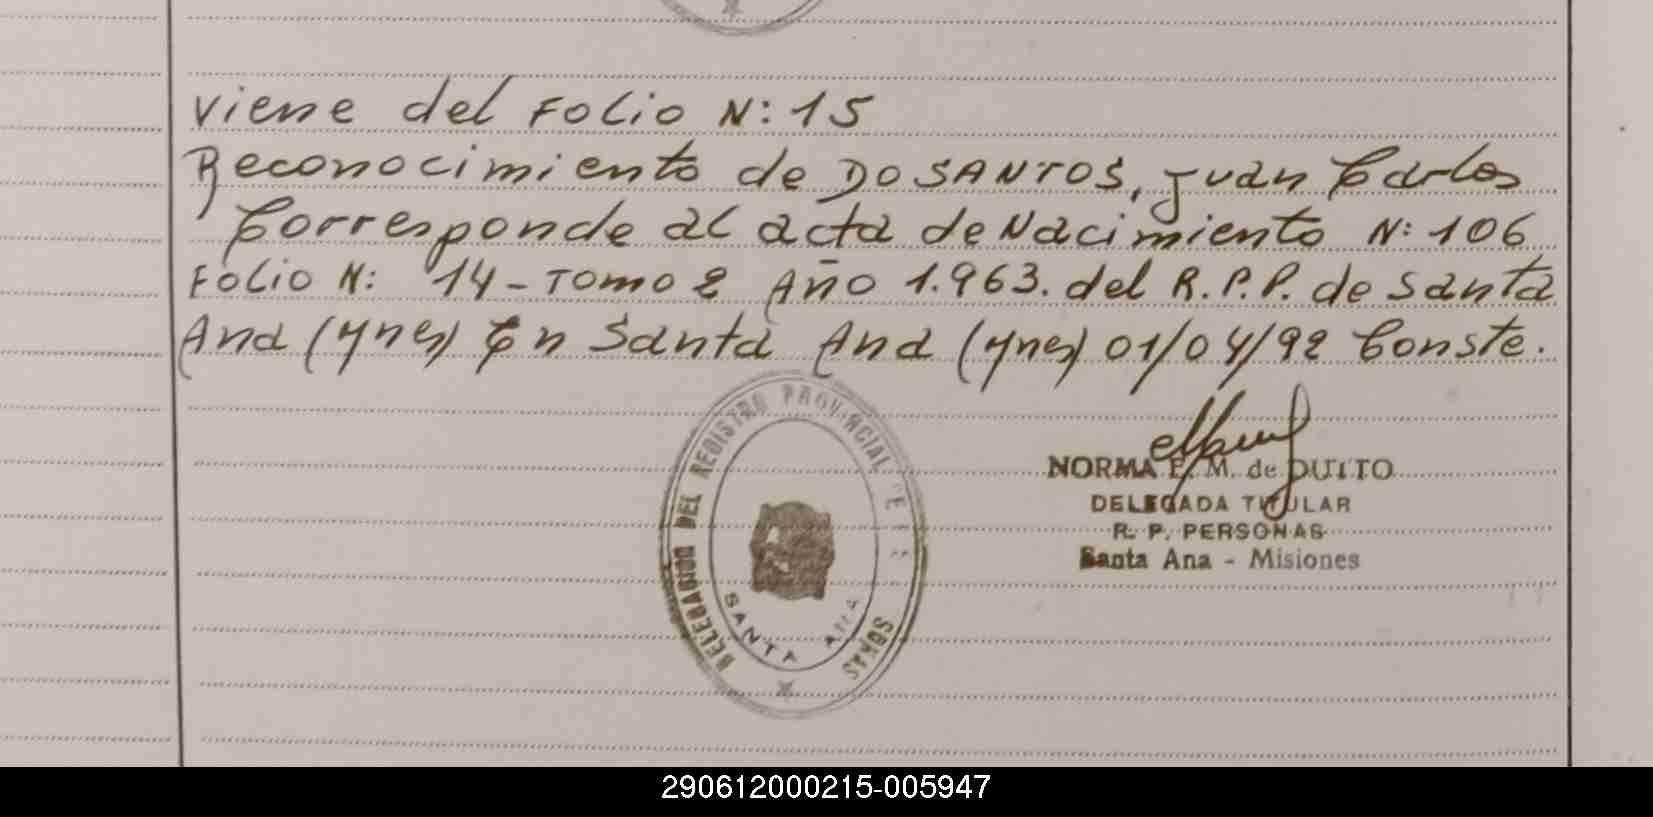 Viene del Folio N: 15
Reconocimiento de DO SANTOS, Juan Carlos
Corresponde al acta de Nacimiento N: 106
Folio N: 14 - Tomo 2 Año 1.963. del R.P.P. de Santa
Ana (Mnes) En Santa Ana (Mnes) 01/04/92 Conste.
NORMA E. M. de DUITO
DELEGADA TITULAR
R. P. PERSONAS
Santa Ana - Misiones
DELEGACION DEL REGISTRO PROVINCIAL DE LAS PERSONAS
SANTA ANA
290612000215-005947